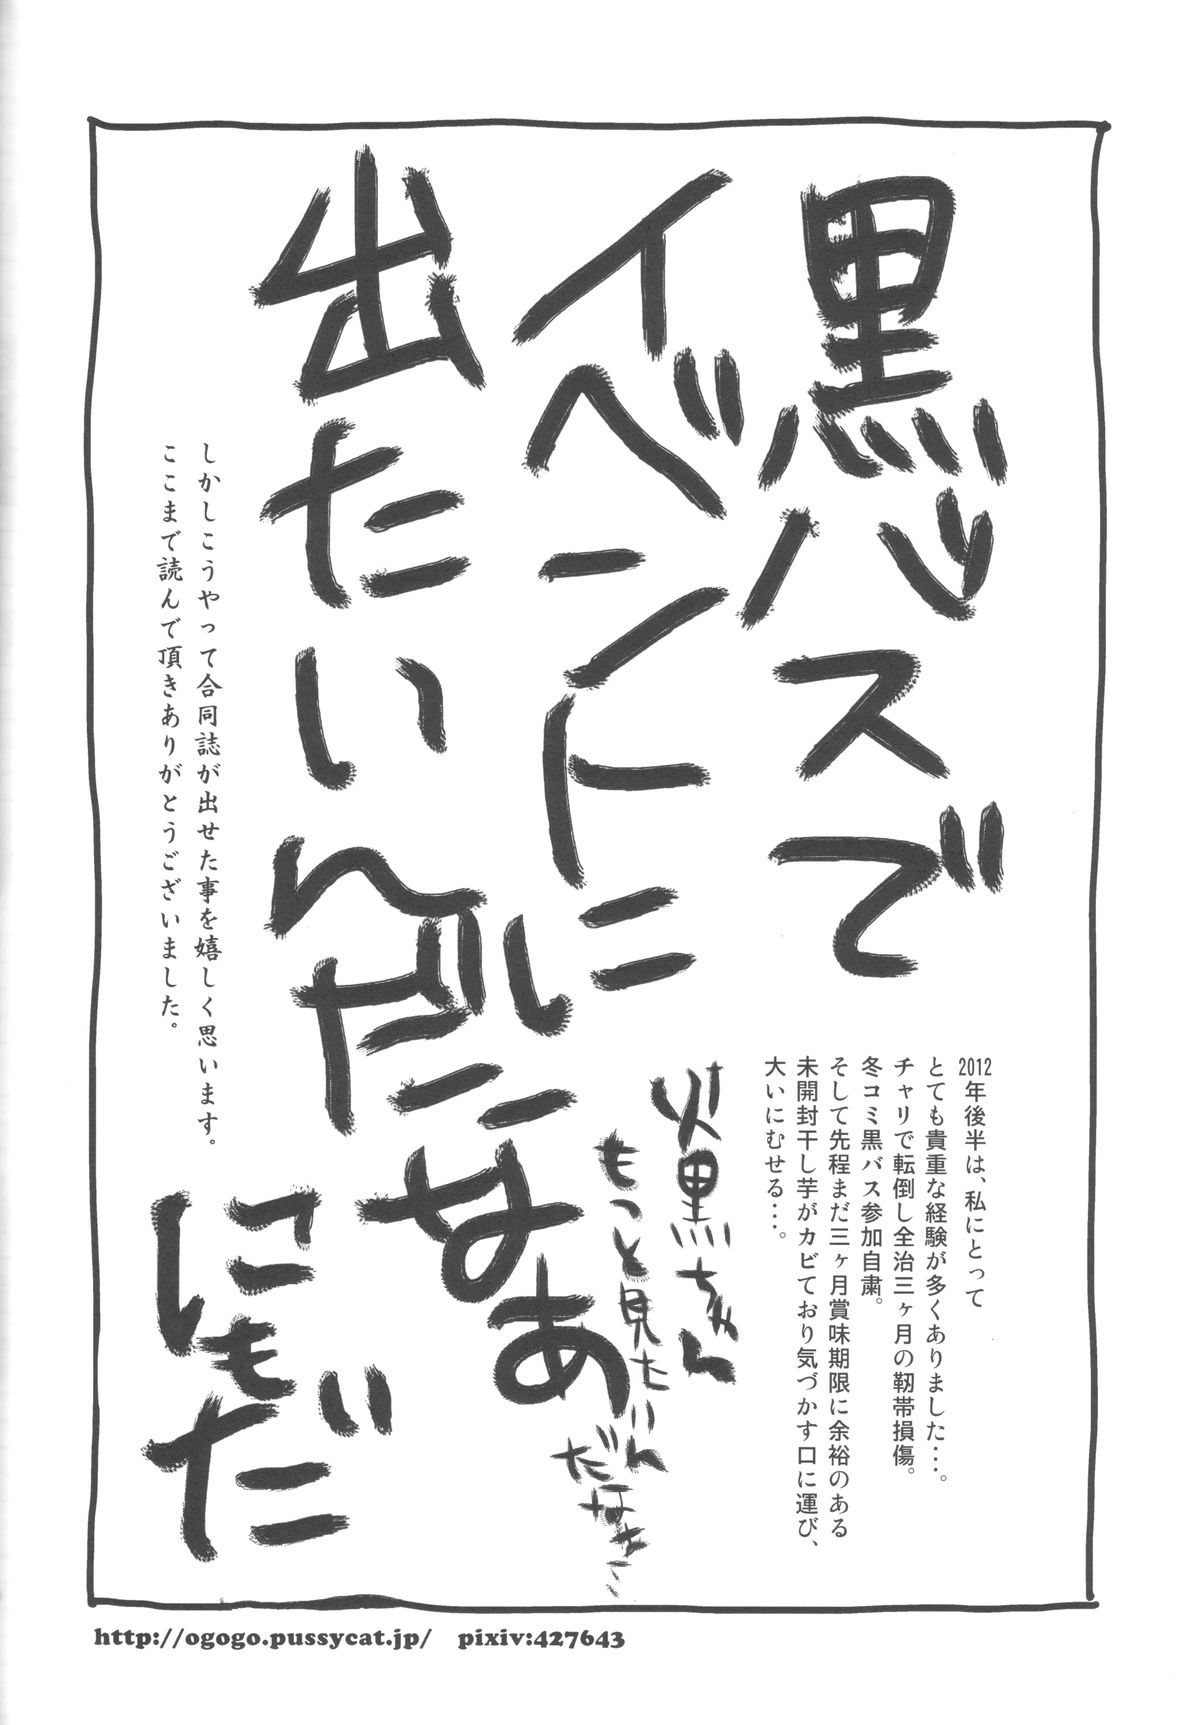 黒バスで
イベントに
出たいんだなあ
にもだ
2012年後半は、私にとって
とても貴重な経験が多くありました…。
チャリで転倒し全治三ヶ月の靭帯損傷。
冬コミ黒バス参加自粛。
そして先程まだ三ヶ月賞味期限に余裕のある
未開封干し芋がカビており気づかす口に運び、
大いにむせる…。
火黒ちゃん
もっと見たいん
だなあ…
しかしこうやって合同誌が出せた事を嬉しく思います。
ここまで読んで頂きありがとうございました。
http://ogogo.pussycat.jp/ pixiv:427643